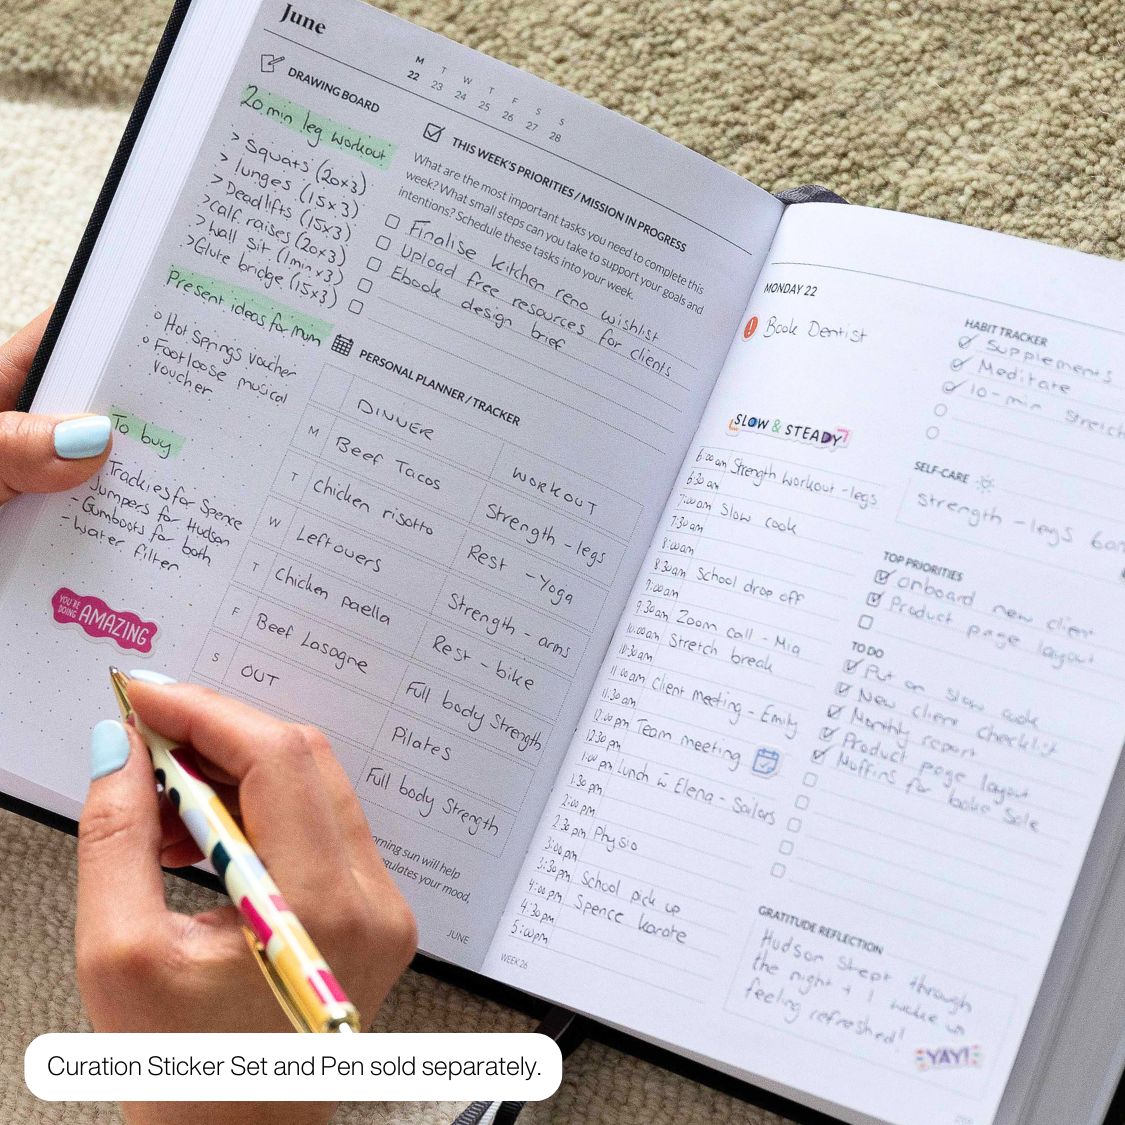 June
M T W T F S S
22 23 24 25 26 27 28
DRAWING BOARD
20 min leg workout
> Squats (20x3)
> lunges (15x3)
> Deadlifts (15x3)
> calf raises (20x3)
> wall sit (1min x3)
> Glute bridge (15x3)
Present ideas for mum
o Hot Springs voucher
o Footloose musical
voucher
To buy
- Trackies for Spence
- Jumpers for Hudson
- Gumboots for both
- water filter
YOU'RE
DOING AMAZING
THIS WEEK'S PRIORITIES / MISSION IN PROGRESS
What are the most important tasks you need to complete this
week? What small steps can you take to support your goals and
intentions? Schedule these tasks into your week.
Finalise kitchen reno wishlist
Upload free resources for clients
Ebook design brief
PERSONAL PLANNER / TRACKER
DINNER WORKOUT
M Beef Tacos Strength - legs
T Chicken risotto Rest - Yoga
W Leftovers Strength - arms
T Chicken paella Rest - bike
F Beef Lasagne Full body Strength
S OUT Pilates
Full body Strength
rning sun will help
egulates your mood,
JUNE
WEEK 26
MONDAY 22
Book Dentist
SLOW & STEADY
6:00am Strength workout - legs
6:30am
7:00am Slow cook
7:30am
8:00am
8:30am School drop off
9:00am
9:30am Zoom call - Mia
10:00am Stretch break
10:30am
11:00am Client meeting - Emily
11:30am
12:00pm Team meeting
12:30pm
1:00pm Lunch w Elena - Sailors
1:30pm
2:00pm
2:30pm Physio
3:00pm
3:30pm School pick up
4:00pm Spence karate
4:30pm
5:00pm
HABIT TRACKER
Supplements
Meditate
10-min stretch
SELF-CARE
Strength - legs 6am
TOP PRIORITIES
Onboard new client
Product page layout
TO DO
Put on slow cook
New client checklist
Monthly report
Product page layout
Muffins for bake sale
GRATITUDE REFLECTION
Hudson slept through
the night + I woke up
feeling refreshed!
YAY!
Curation Sticker Set and Pen sold separately.